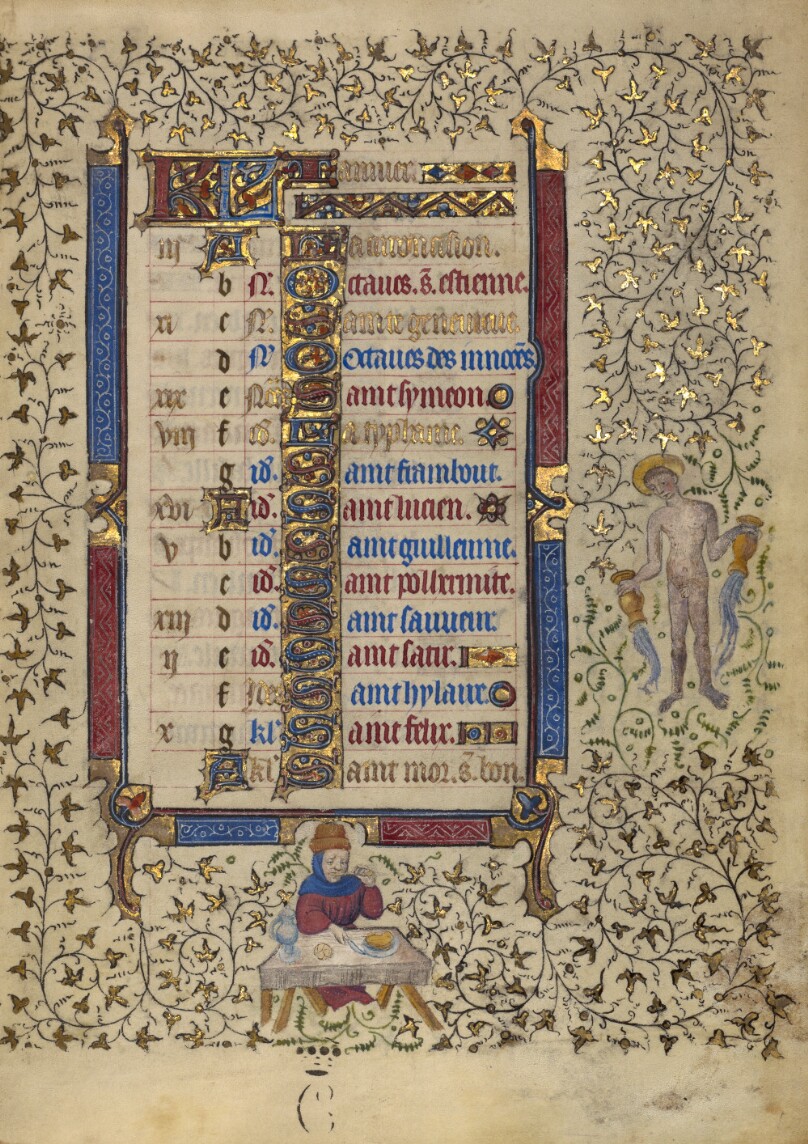 KL Januier.
iij A La circoncision.
b N. Octaues. s. estienne.
xi c N. Sainte geneuieue.
d N. Octaues des innocẽs.
xix e Saint symeon.
viij f id. La typhaine.
g id. Saint frambout.
xvi A id. Saint lucien.
v b id. Saint guilleume.
c id. Saint
xiij d id. Saint sauueur.
ij e id. Saint satur.
f Saint hylaire.
x g kl. Saint felix.
A kl. Saint mor. s. bon.